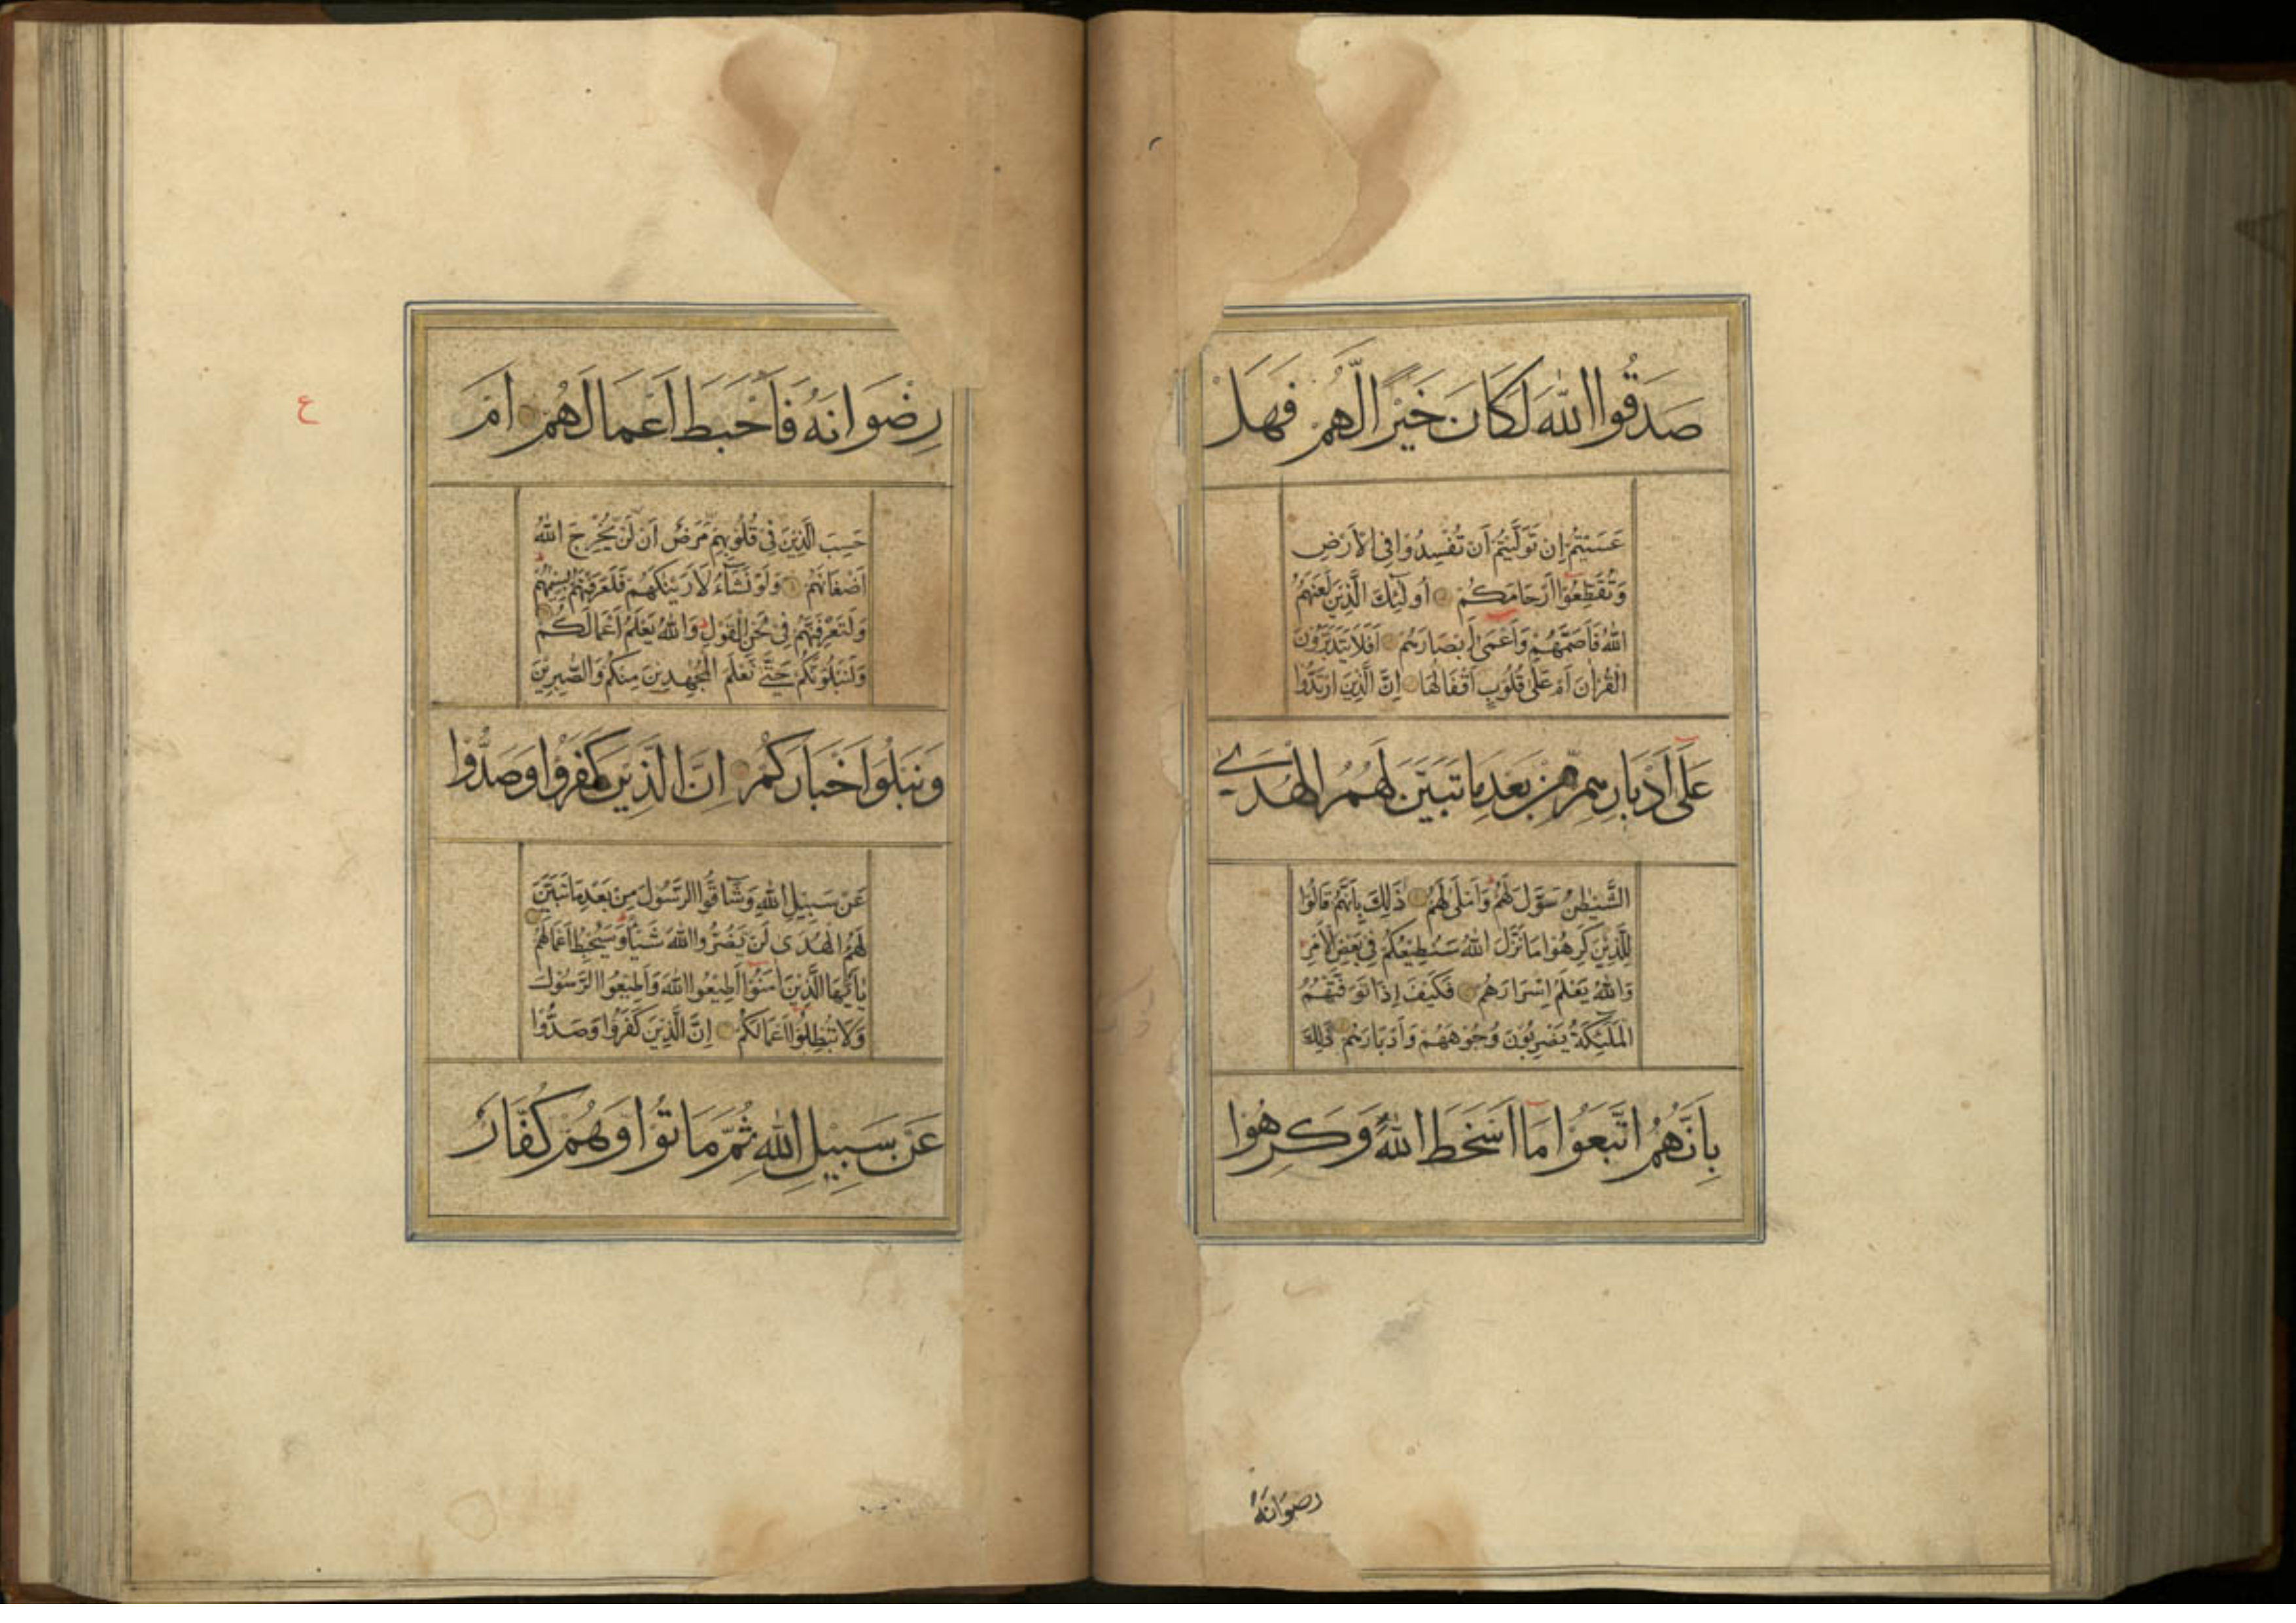 صَدَقُوا اللهَ لَكَانَ خَيْرًا لَّهُمْ فَهَلْ
عَسَيْتُمْ إِن تَوَلَّيْتُمْ أَن تُفْسِدُوا فِي الْأَرْضِ
وَتُقَطِّعُوا أَرْحَامَكُمْ أُولَٰئِكَ الَّذِينَ لَعَنَهُمُ
اللهُ فَأَصَمَّهُمْ وَأَعْمَىٰ أَبْصَارَهُمْ أَفَلَا يَتَدَبَّرُونَ
الْقُرْاٰنَ أَمْ عَلَىٰ قُلُوبٍ أَقْفَالُهَا إِنَّ الَّذِينَ ارْتَدُّوا
عَلَىٰ أَدْبَارِهِم مِّن بَعْدِ مَا تَبَيَّنَ لَهُمُ الْهُدَى
الشَّيْطٰنُ سَوَّلَ لَهُمْ وَأَمْلَىٰ لَهُمْ ذَٰلِكَ بِأَنَّهُمْ قَالُوا
لِلَّذِينَ كَرِهُوا مَا نَزَّلَ اللهُ سَنُطِيعُكُمْ فِي بَعْضِ الْأَمْرِ
وَاللهُ يَعْلَمُ إِسْرَارَهُمْ فَكَيْفَ إِذَا تَوَفَّتْهُمُ
الْمَلٰئِكَةُ يَضْرِبُونَ وُجُوهَهُمْ وَأَدْبَارَهُمْ ذَٰلِكَ
بِأَنَّهُمُ اتَّبَعُوا مَا أَسْخَطَ اللهَ وَكَرِهُوا
رضوانه
ع
رِضْوَانَهُ فَأَحْبَطَ أَعْمَالَهُمْ أَمْ
حَسِبَ الَّذِينَ فِي قُلُوبِهِم مَّرَضٌ أَن لَّن يُخْرِجَ اللهُ
أَضْغَانَهُمْ وَلَوْ نَشَاءُ لَأَرَيْنٰكَهُمْ فَلَعَرَفْتَهُم بِسِيمٰهُمْ
وَلَتَعْرِفَنَّهُمْ فِي لَحْنِ الْقَوْلِ وَاللهُ يَعْلَمُ أَعْمَالَكُمْ
وَلَنَبْلُوَنَّكُمْ حَتَّىٰ نَعْلَمَ الْمُجٰهِدِينَ مِنكُمْ وَالصّٰبِرِينَ
وَنَبْلُوَا أَخْبَارَكُمْ إِنَّ الَّذِينَ كَفَرُوا وَصَدُّوا
عَن سَبِيلِ اللهِ وَشَاقُّوا الرَّسُولَ مِن بَعْدِ مَا تَبَيَّنَ
لَهُمُ الْهُدَى لَن يَضُرُّوا اللهَ شَيْئًا وَسَيُحْبِطُ أَعْمَالَهُمْ
يٰأَيُّهَا الَّذِينَ اٰمَنُوا أَطِيعُوا اللهَ وَأَطِيعُوا الرَّسُولَ
وَلَا تُبْطِلُوا أَعْمَالَكُمْ إِنَّ الَّذِينَ كَفَرُوا وَصَدُّوا
عَن سَبِيلِ اللهِ ثُمَّ مَاتُوا وَهُمْ كُفَّارٌ